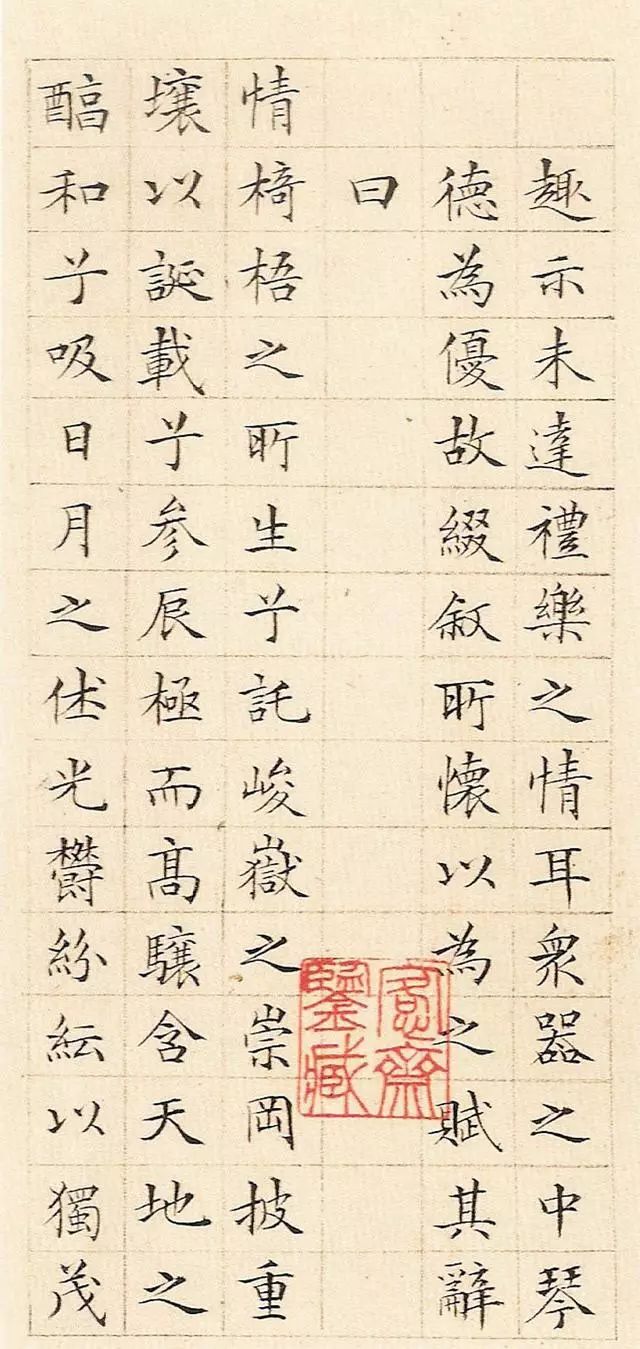 趣示未達禮樂之情耳衆器之中琴
德為優故綴敘所懷以為之賦其辭
曰
情椅梧之所生兮託峻嶽之崇岡披重
壤以誕載兮参辰極而高驤含天地之
醕和兮吸日月之休光欝紛紜以獨茂
愙齋
鑒藏